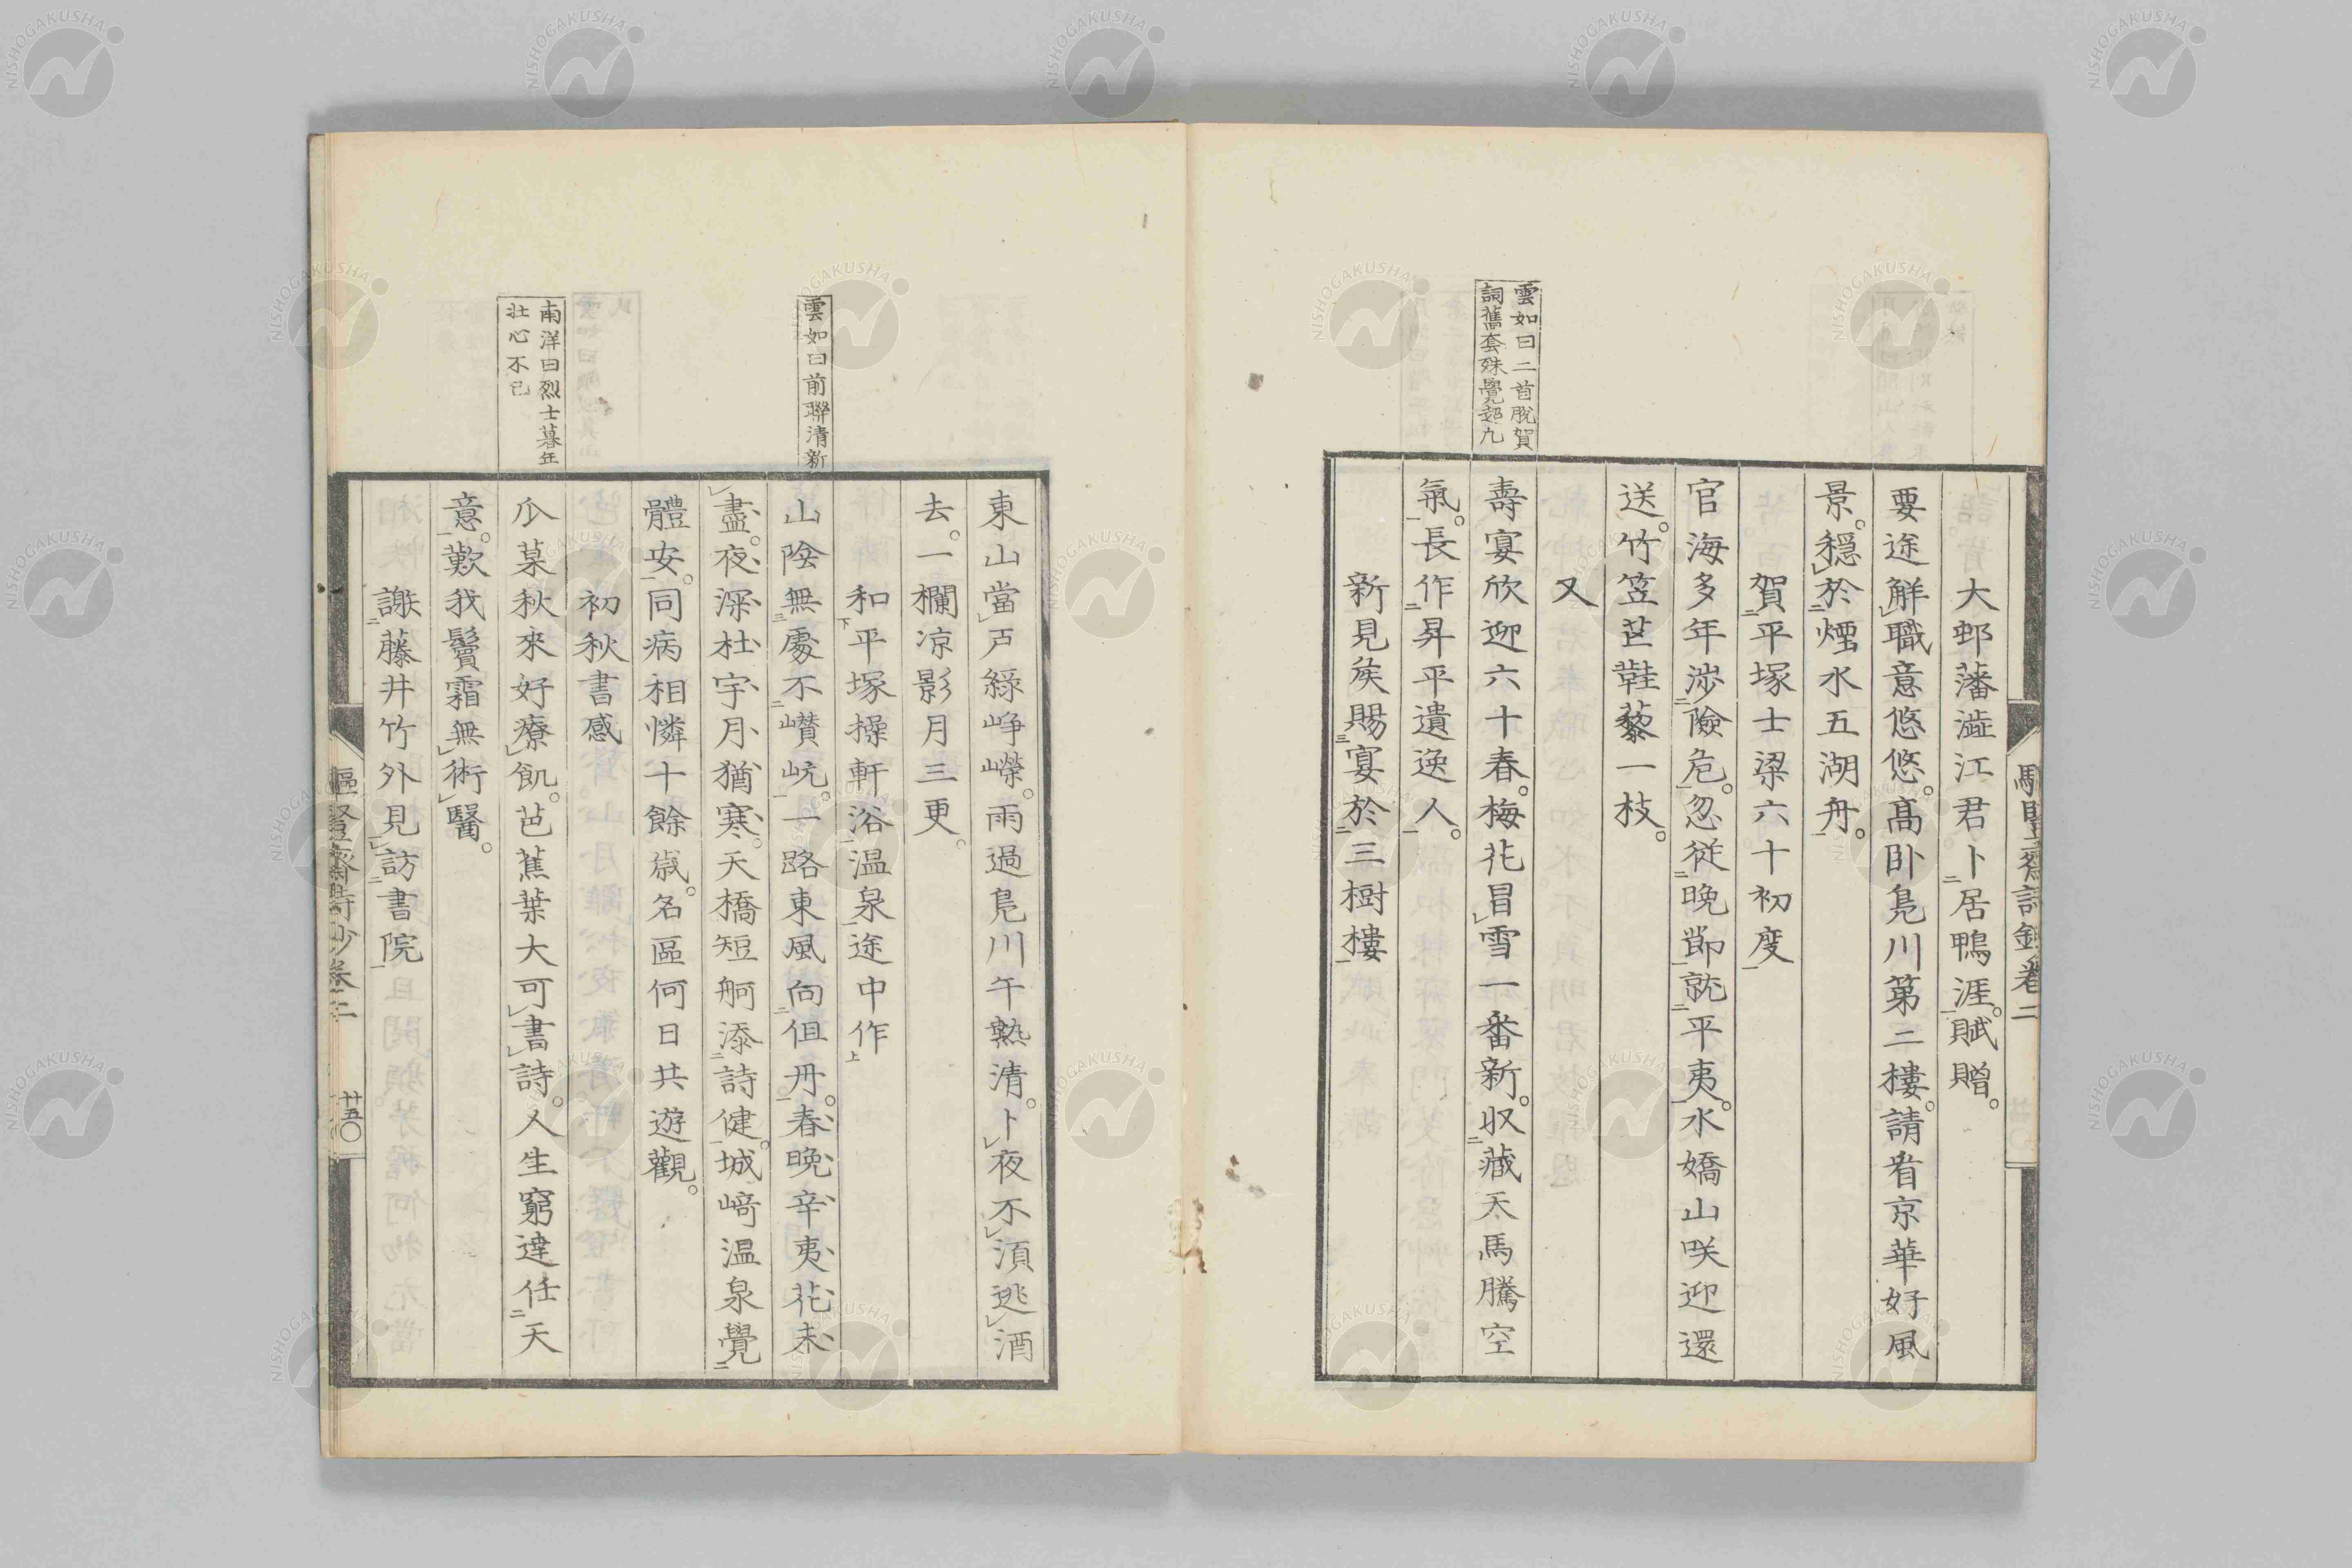 雲如曰二首脫賀
詞舊套殊覺超凡
大邨藩澁江君卜居鴨涯。賦贈。
要途解職意悠悠。高臥鳧川第二樓。請看京華好風
景。穩於煙水五湖舟。
賀平塚士梁六十初度
官海多年涉險危。忽從晚節就平夷。水嬌山咲迎還
送。竹笠芒鞋藜一枝。
又
壽宴欣迎六十春。梅花冒雪一番新。収藏天馬騰空
氣。長作昇平遺逸人。
新見矦賜宴於三樹樓
雲如曰前聯清新
南洋曰烈士暮年
壯心不已
東山當戶綠崢嶸。雨過鳧川午熱清。卜夜不須逃酒
去。一欄凉影月三更。
和平塚操軒浴温泉途中作
山陰無處不巑岏。一路東風向但丹。春晚辛夷花未
盡。夜深杜宇月猶寒。天橋短舸添詩健。城崎温泉覺
體安。同病相憐十餘歲。名區何日共遊觀。
初秋書感
爪菓秋來好療飢。芭蕉葉大可書詩。人生窮達任天
意。歎我鬢霜無術醫。
謝藤井竹外見訪書院
廿五
NISHOGAKUSHA